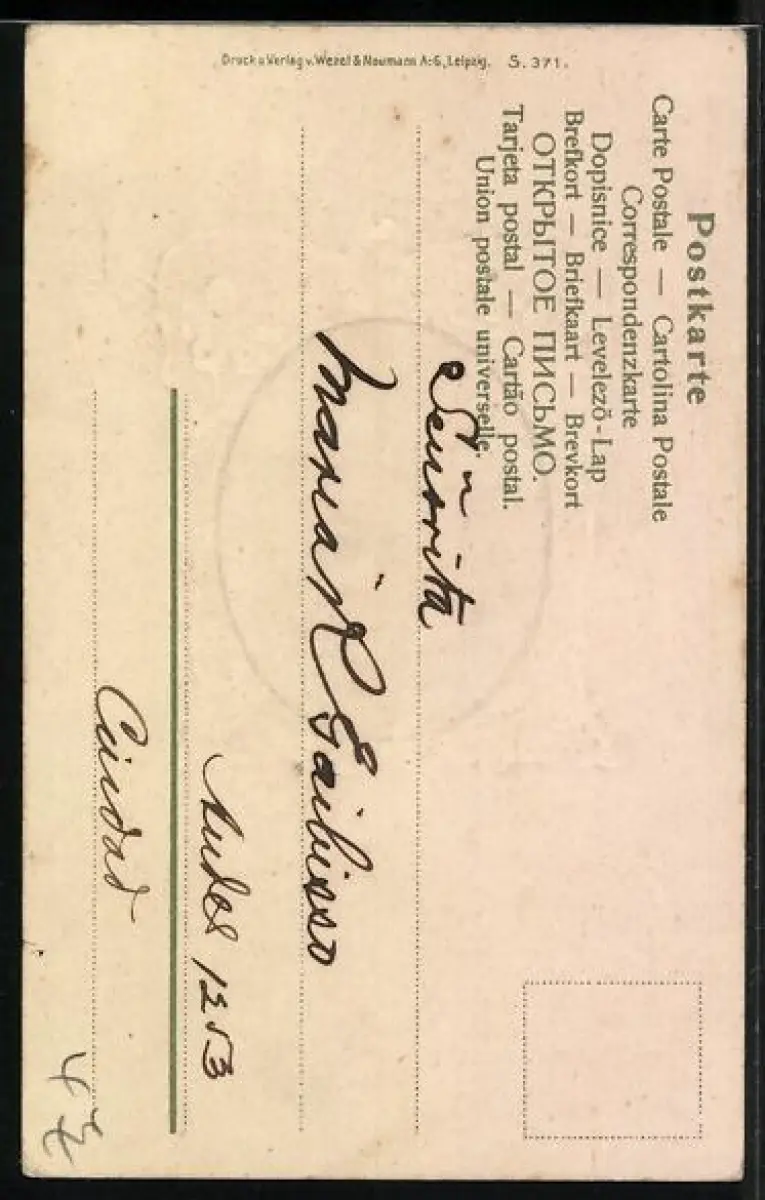 Postkarte
Carte Postale — Cartolina Postale
Correspondenzkarte
Dopisnice — Levelező-Lap
Brefkort — Briefkaart — Brevkort
ОТКРЫТОЕ ПИСЬМО.
Tarjeta postal — Cartão postal.
Union postale universelle.
Señorita
Maria R Gaibisso
Andes 1253
Ciudad
Druck u Verlag v. Wezel & Naumann A.-G., Leipzig. S. 371.